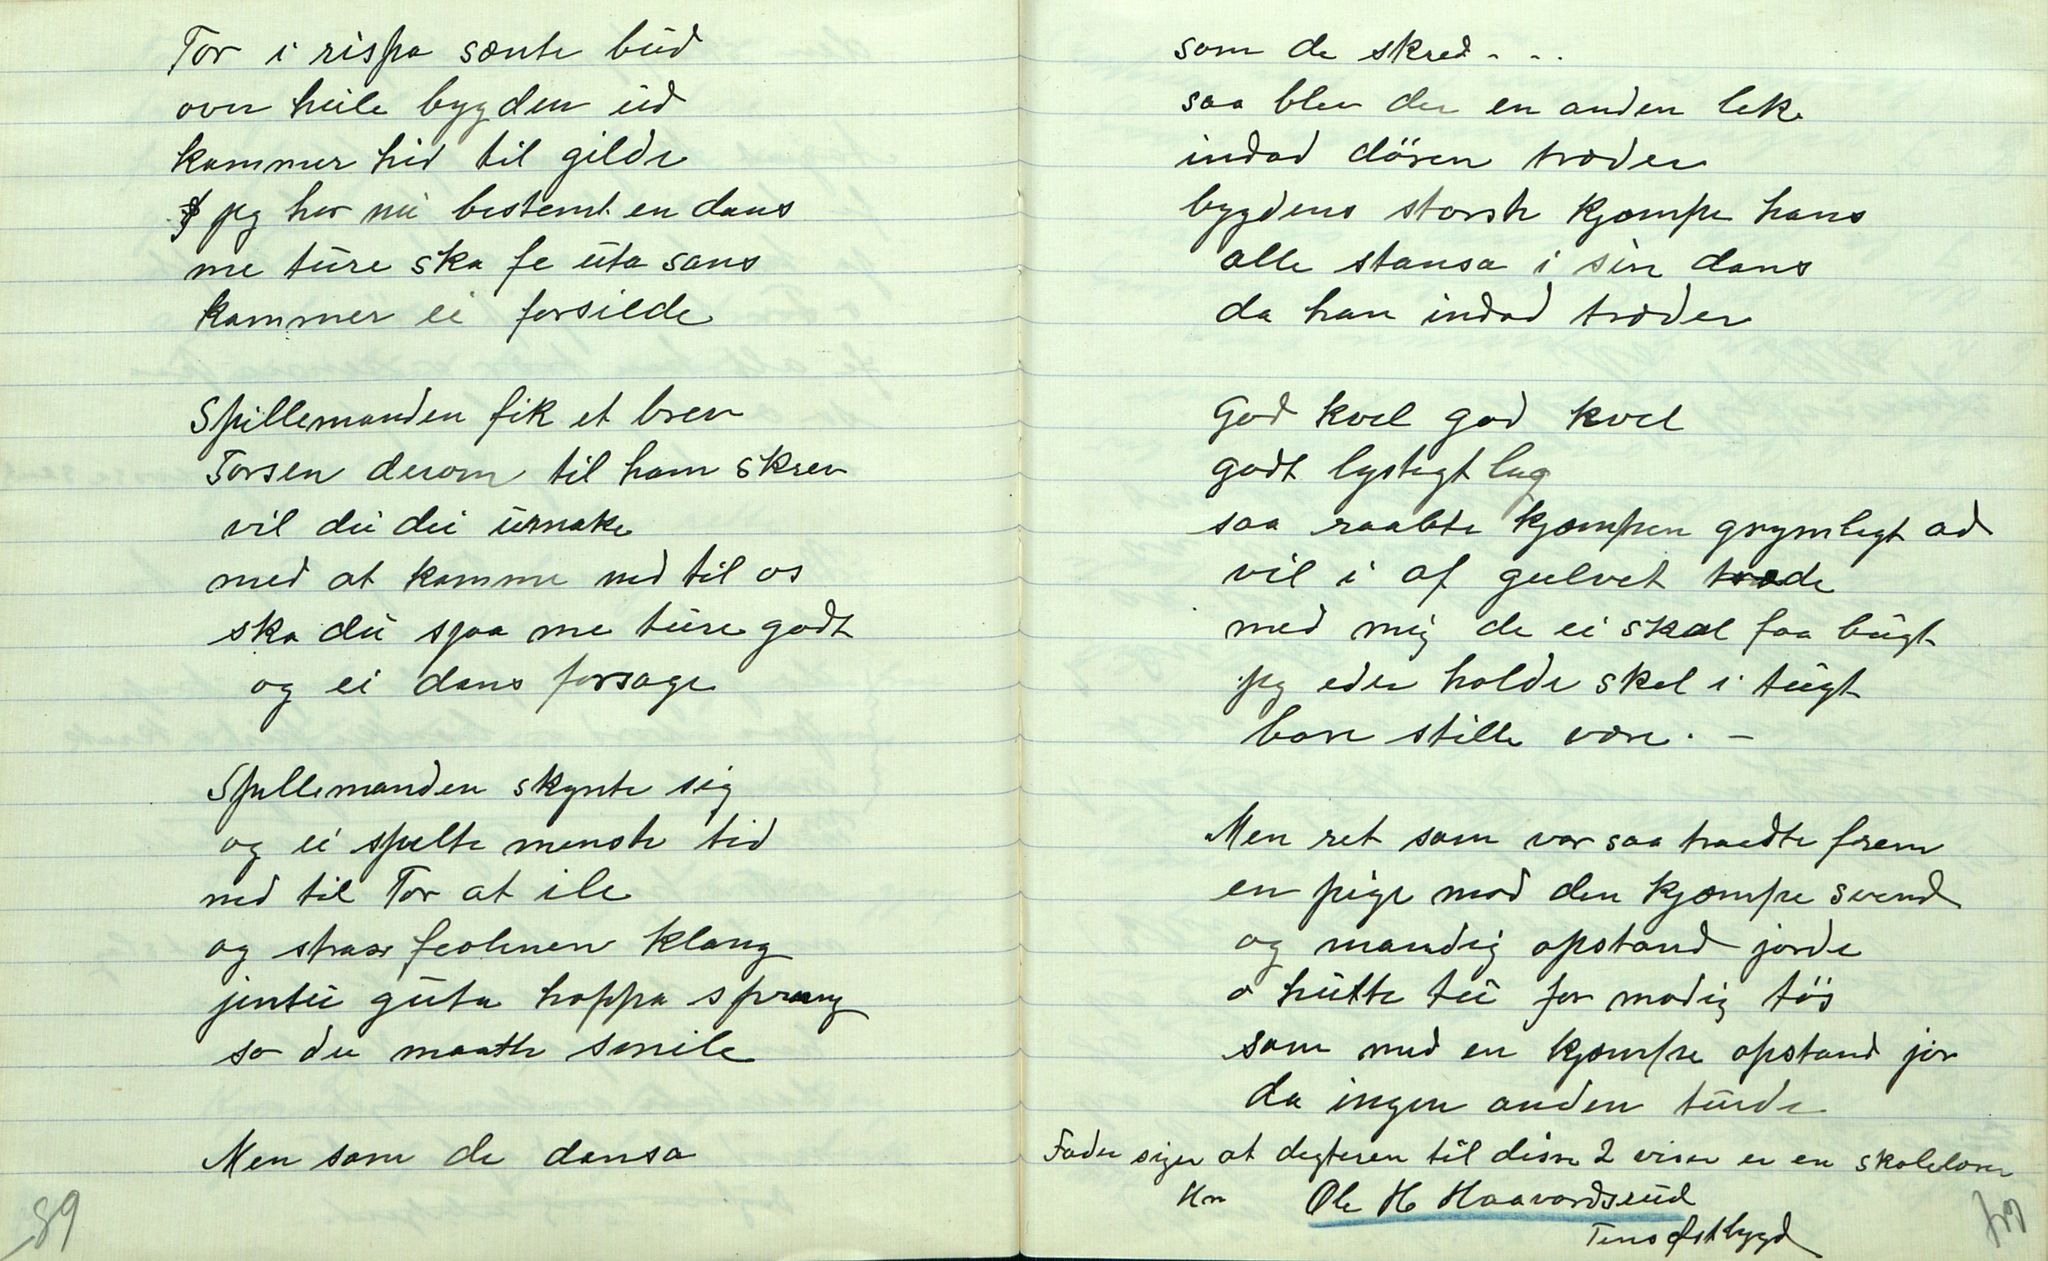 Tor i rispa sænte bud
over heile bygden ud
kommer hid til gilde
jeg har nu bestemt en dans
me ture ska fe uta sans
kommer ei forsilde
Spillemanden fik et brev
Torsen derom til ham skrev
vil du dei umake
med at komme ned til os
ska du spaa me ture godt
og ei dans forsage
Spillemanden skynte sig
og ei spilte menste tid
ned til Tor at ile
og strax feolinen klang
jentu guta hoppa sprang
so du maatte smile
Men som de dansa
89
som de skred - - -
saa blev der en anden lek
indad dören træder
bygdens største kjæmpe hans
alle stansa i sin dans
da han indad træder
God kvel god kvel
godt lystigt lag
saa raabte kjæmpen grymligt ad
vil i af gulvet træde
med mig de ei skal faa bugt
jeg eder holde skal i tugt
bare stille være. -
Men ret som var saa traadte frem
en pige mod den kjæmpe svend
og mandig opstand jorde
o hutte tu for modig tös
som med en kjæmpe opstand jor
da ingen anden turde
Fader siger at degteren til disse 2 viser er en skolelærer
Hr Ole H Haavardsrud
Tens Østbygd